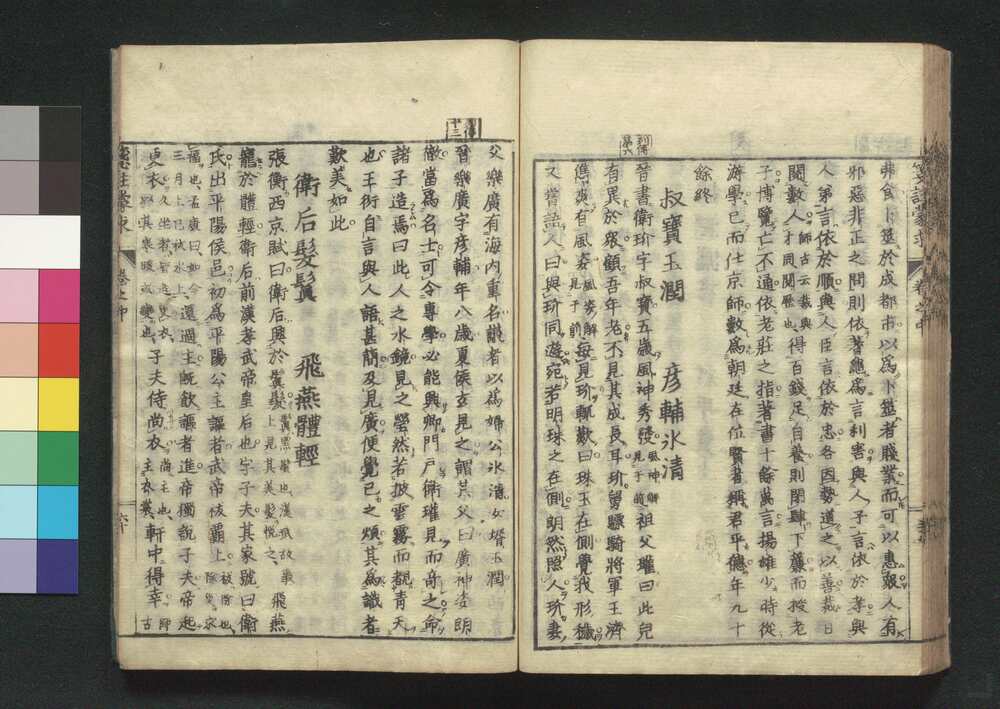 弗食卜筮於成都市以爲卜筮者賤業而可以惠衆人有
邪惡非正之問則依蓍龜爲言利害與人子言依於孝與
人弟言依於順與人臣言依於忠各因勢道之以善裁日
閱數人師古云裁與才同閱歷也得百錢足自養則閉肆下簾而授老
子博覽亡不通依老莊之指著書十餘萬言揚雄少時從
游學已而仕京師數爲朝廷在位賢者稱君平德年九十
餘終
叔寶玉潤 彦輔氷清
列傳第六
晉書衛玠字叔寶五歲風神秀發風神解見于前祖父瓘曰此兒
有異於衆顧吾年老不見其成長耳玠舅驃騎將軍王濟
儁爽有風姿風姿解見于前每見玠輒歎曰珠玉在側覺我形穢
又嘗語人曰與玠同遊宛若明珠之在側朗然照人玠妻
父樂廣有海内重名議者以爲婦公氷清女壻玉潤
列傳十三
晉樂廣字彦輔年八歲夏侯玄見之謂其父曰廣神姿朗
徹當爲名士可令專學必能興卿門戸衛瓘見而奇之命
諸子造焉曰此人之水鏡見之瑩然若披雲霧而覩青天
也王衍自言與人語甚簡及見廣便覺已之煩其爲識者
歎美如此
衛后髮鬒 飛燕體輕
張衡西京賦曰衛后興於鬒髮鬒黑髮也漢武故事上見其美髮悦之飛燕
寵於體輕衛后前漢孝武帝皇后也字子夫其家號曰衛
氏出平陽侯邑初爲平陽公主謳者武帝祓霸上祓除也除災求
福也孟康曰如今三月上巳祓水上還過主既飲謳者進帝獨說子夫帝起
更衣子夫侍尚衣尚主也主衣裳軒中得幸
卷之中
六十